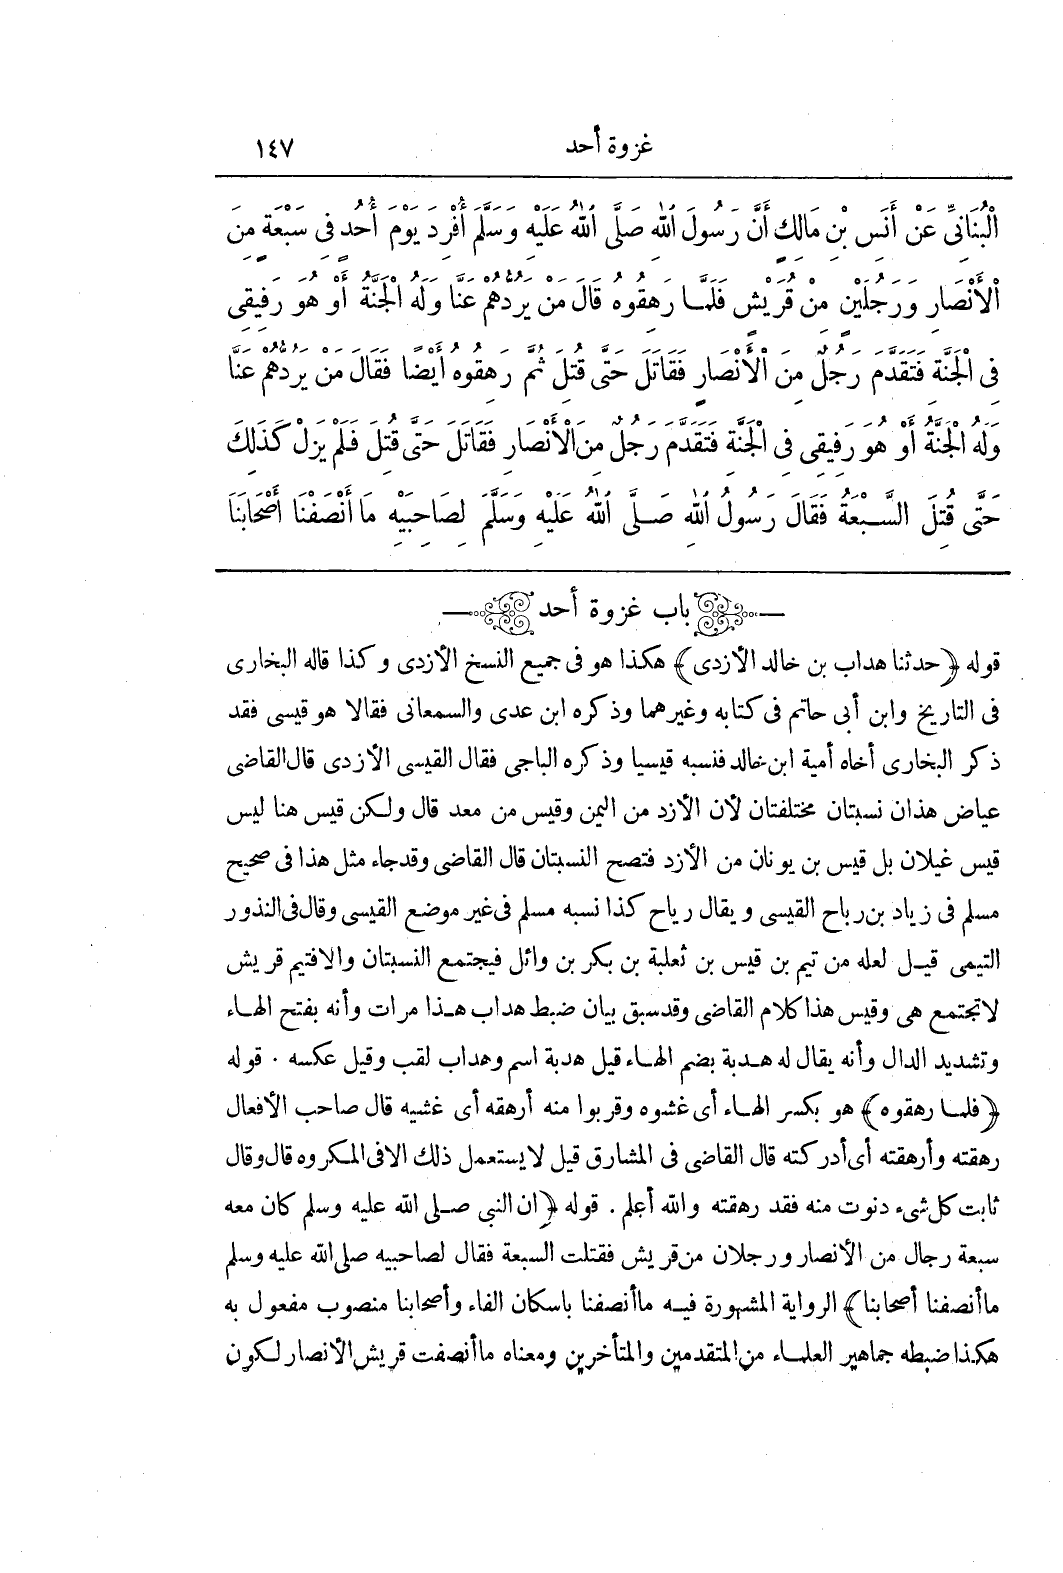 غزوة أحد ١٤٧
الْبُنَانِيِّ عَنْ أَنَسِ بْنِ مَالِكٍ أَنَّ رَسُولَ اللّٰهِ صَلَّى اللّٰهُ عَلَيْهِ وَسَلَّمَ أُفْرِدَ يَوْمَ أُحُدٍ فِى سَبْعَةٍ مِنَ
الْأَنْصَارِ وَرَجُلَيْنِ مِنْ قُرَيْشٍ فَلَمَّا رَهِقُوهُ قَالَ مَنْ يَرُدُّهُمْ عَنَّا وَلَهُ الْجَنَّةُ أَوْ هُوَ رَفِيقِى
فِى الْجَنَّةِ فَتَقَدَّمَ رَجُلٌ مِنَ الْأَنْصَارِ فَقَاتَلَ حَتَّى قُتِلَ ثُمَّ رَهِقُوهُ أَيْضًا فَقَالَ مَنْ يَرُدُّهُمْ عَنَّا
وَلَهُ الْجَنَّةُ أَوْ هُوَ رَفِيقِى فِى الْجَنَّةِ فَتَقَدَّمَ رَجُلٌ مِنَ الْأَنْصَارِ فَقَاتَلَ حَتَّى قُتِلَ فَلَمْ يَزَلْ كَذٰلِكَ
حَتَّى قُتِلَ السَّبْعَةُ فَقَالَ رَسُولُ اللّٰهِ صَلَّى اللّٰهُ عَلَيْهِ وَسَلَّمَ لِصَاحِبَيْهِ مَا أَنْصَفْنَا أَصْحَابَنَا
باب غزوة أحد
قوله ﴿حدثنا هداب بن خالد الأزدى﴾ هكذا هو فى جميع النسخ الأزدى وكذا قاله البخارى
فى التاريخ وابن أبى حاتم فى كتابه وغيرهما وذكره ابن عدى والسمعانى فقالا هو قيسى فقد
ذكر البخارى أخاه أمية ابن خالد فنسبه قيسيا وذكره الباجى فقال القيسى الأزدى قال القاضى
عياض هذان نسبتان مختلفتان لأن الأزد من اليمن وقيس من معد قال ولكن قيس هنا ليس
قيس غيلان بل قيس بن يونان من الأزد فتصح النسبتان قال القاضى وقدجاء مثل هذا فى صحيح
مسلم فى زياد بن رباح القيسى ويقال رياح كذا نسبه مسلم فى غير موضع القيسى وقال فى النذور
التيمى قيل لعله من تيم بن قيس بن ثعلبة بن بكر بن وائل فيجتمع النسبتان والافتيم قريش
لاتجتمع هى وقيس هذا كلام القاضى وقدسبق بيان ضبط هداب هذا مرات وأنه بفتح الهاء
وتشديد الدال وأنه يقال له هدبة بضم الهاء قيل هدبة اسم وهداب لقب وقيل عكسه . قوله
﴿فلما رهقوه﴾ هو بكسر الهاء أى غشوه وقربوا منه أرهقه أى غشيه قال صاحب الأفعال
رهقته وأرهقته أى أدركته قال القاضى فى المشارق قيل لايستعمل ذلك الافى المكروه قال وقال
ثابت كل شىء دنوت منه فقد رهقته والله أعلم . قوله ﴿ان النبى صلى الله عليه وسلم كان معه
سبعة رجال من الأنصار ورجلان من قريش فقتلت السبعة فقال لصاحبيه صلى الله عليه وسلم
ماأنصفنا أصحابنا﴾ الرواية المشهورة فيه ماأنصفنا باسكان الفاء وأصحابنا منصوب مفعول به
هكذا ضبطه جماهير العلماء من المتقدمين والمتأخرين ومعناه ماأنصفت قريش الأنصار لكون